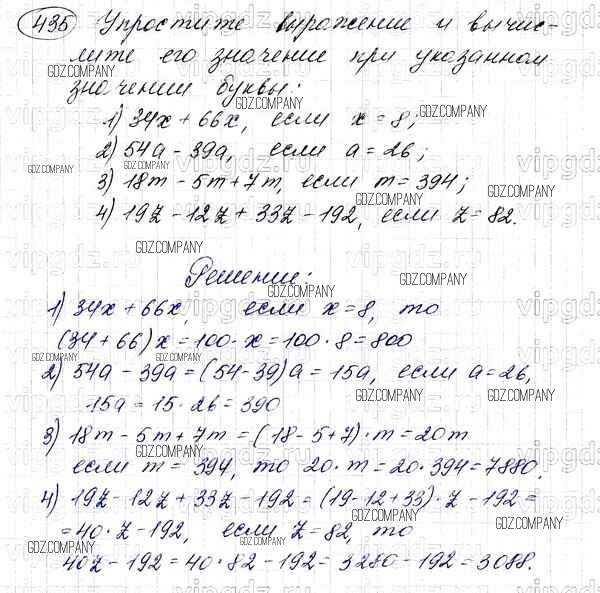 435 Упростите выражение и вычис-
лите его значение при указанном
значении буквы:
1) 34x + 66x, если x = 8;
2) 54a - 39a, если a = 26;
3) 18m - 5m + 7m, если m = 394;
4) 19z - 12z + 33z - 192, если z = 82.
Решение:
1) 34x + 66x, если x = 8, то
(34 + 66)x = 100 · x = 100 · 8 = 800
2) 54a - 39a = (54 - 39)a = 15a, если a = 26,
15a = 15 · 26 = 390
3) 18m - 5m + 7m = (18 - 5 + 7) · m = 20m
если m = 394, то 20 · m = 20 · 394 = 7880.
4) 19z - 12z + 33z - 192 = (19 - 12 + 33) · z - 192 =
= 40 · z - 192, если z = 82, то
40z - 192 = 40 · 82 - 192 = 3280 - 192 = 3088.
GDZ.COMPANY
vipgdz.ru